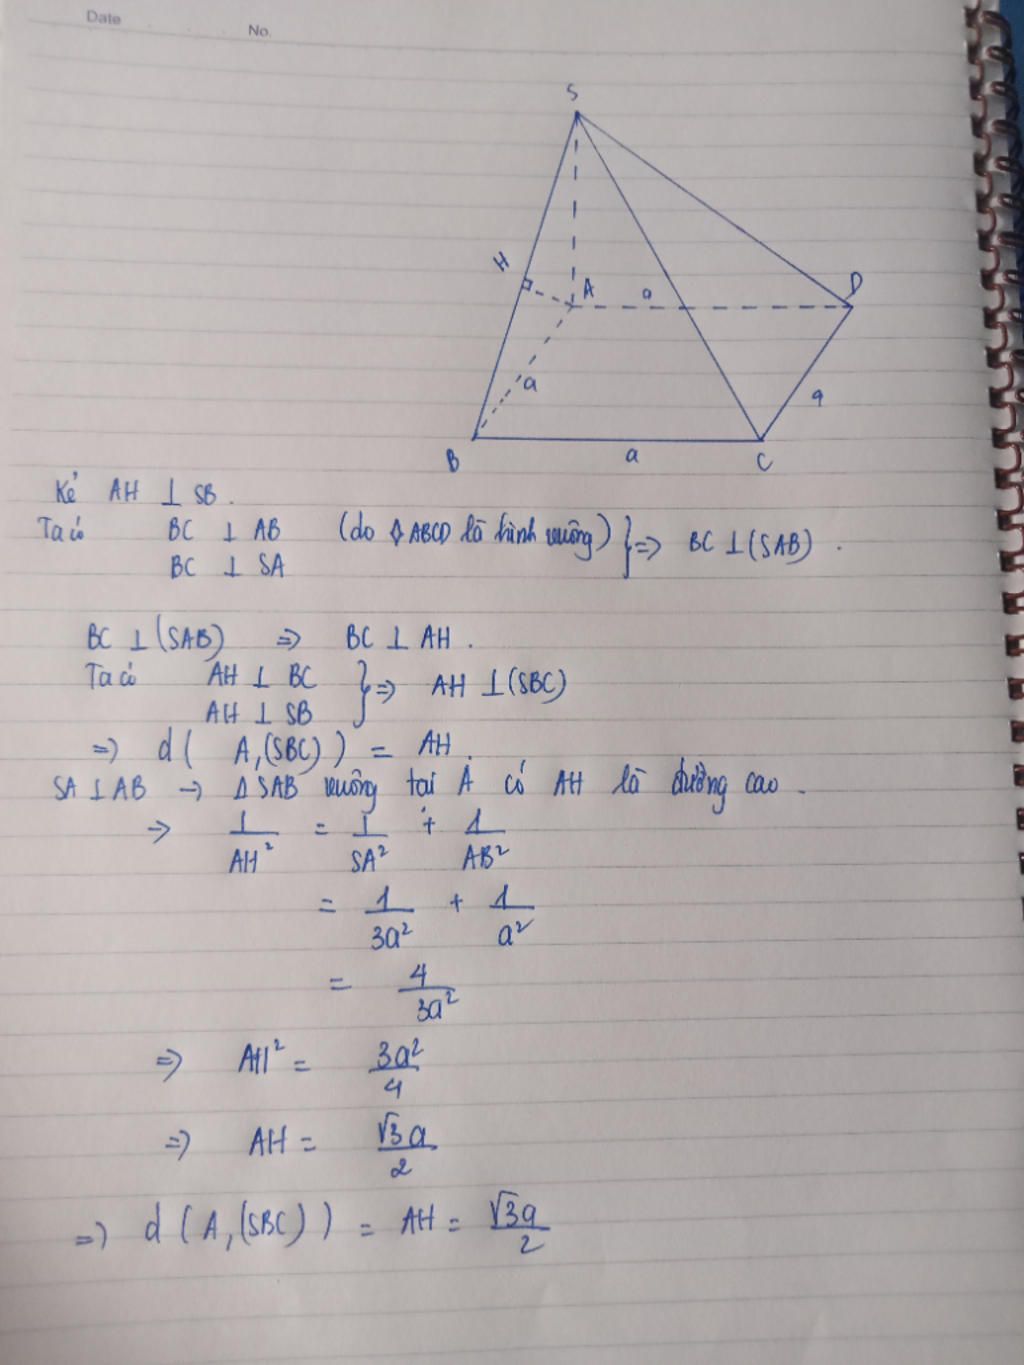 Date
No.
S
H
A
a
D
a
a
B
a
C
Kẻ AH ⊥ SB.
Ta có BC ⊥ AB (do ◊ABCD là hình vuông) } => BC ⊥ (SAB).
BC ⊥ SA
BC ⊥ (SAB) => BC ⊥ AH.
Ta có AH ⊥ BC } => AH ⊥ (SBC)
AH ⊥ SB
=> d( A,(SBC)) = AH.
SA ⊥ AB → Δ SAB vuông tại A có AH là đường cao.
=> 1/AH² = 1/SA² + 1/AB²
= 1/3a² + 1/a²
= 4/3a²
=> AH² = 3a²/4
=> AH = √3a/2
=> d (A,(SBC)) = AH = √3a/2